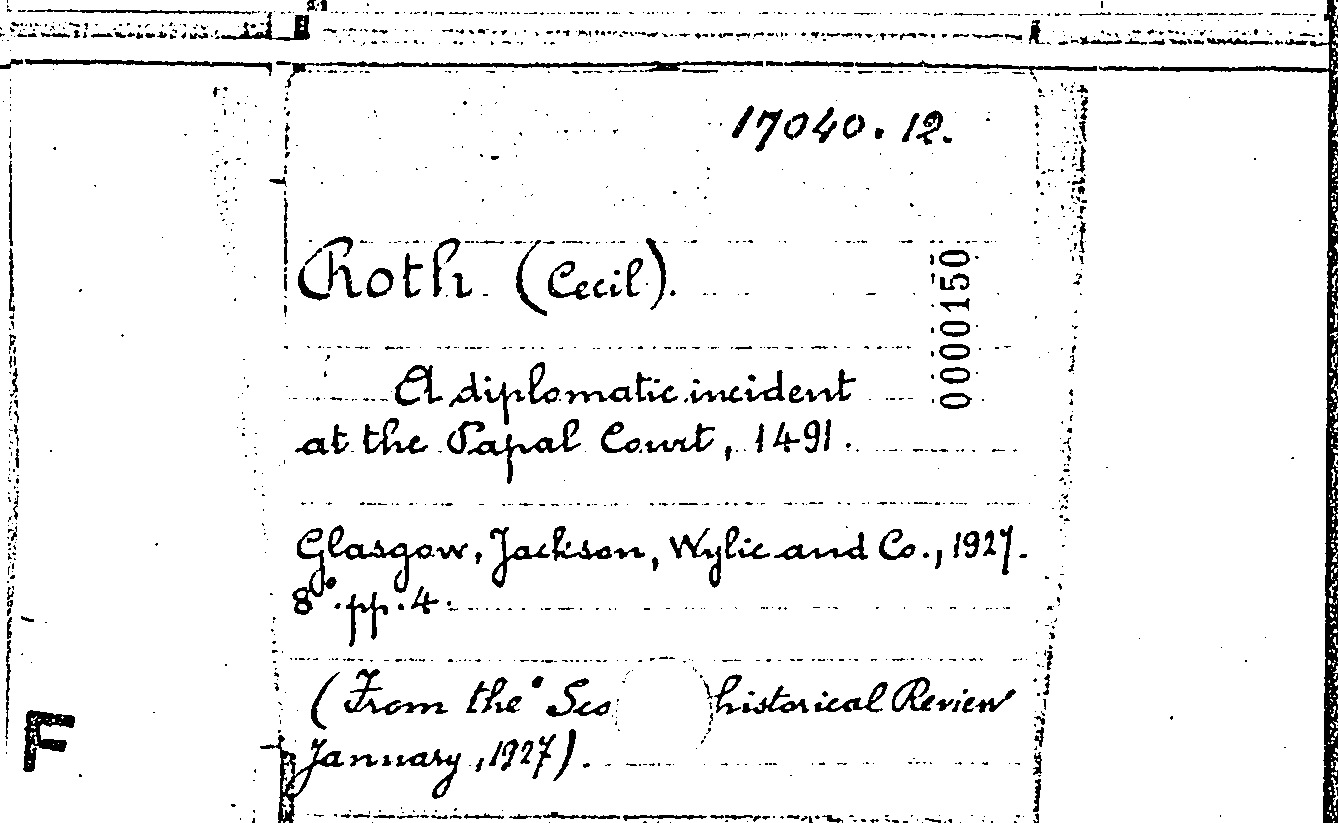 17040.12.
Roth (Cecil).
0000150
A diplomatic incident
at the Papal Court, 1491.
Glasgow, Jackson, Wylie and Co., 1927.
8°. pp. 4.
(From the "Sco historical Review
January, 1927).
F